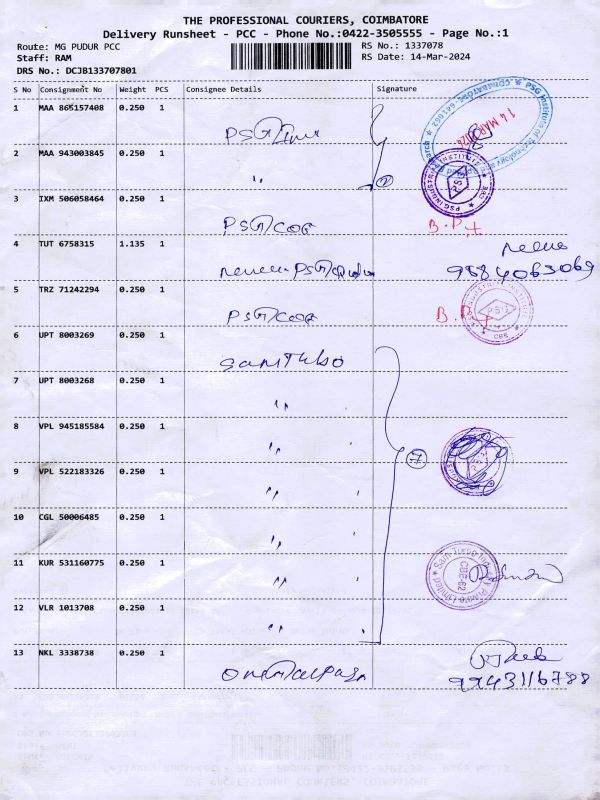 THE PROFESSIONAL COURIERS, COIMBATORE
Delivery Runsheet - PCC - Phone No.:0422-3505555 - Page No.:1
Route: MG PUDUR PCC RS No.: 1337078
Staff: RAM RS Date: 14-Mar-2024
DRS No.: DCJB133707801
S No Consignment No Weight PCS Consignee Details Signature
1 MAA 865157408 0.250 1
14 MAR 2024
2 MAA 943003845 0.250 1 "
3 IXM 506058464 0.250 1 PSG/COE
4 TUT 6758315 1.135 1
9884063069
5 TRZ 71242294 0.250 1 PSG/COE
PSG
CBE
6 UPT 8003269 0.250 1
7 UPT 8003268 0.250 1 "
8 VPL 945185584 0.250 1 "
7
9 VPL 522183326 0.250 1 "
10 CGL 50006485 0.250 1 "
11 KUR 531160775 0.250 1 "
12 VLR 1013708 0.250 1 "
13 NKL 3338738 0.250 1
9943116788